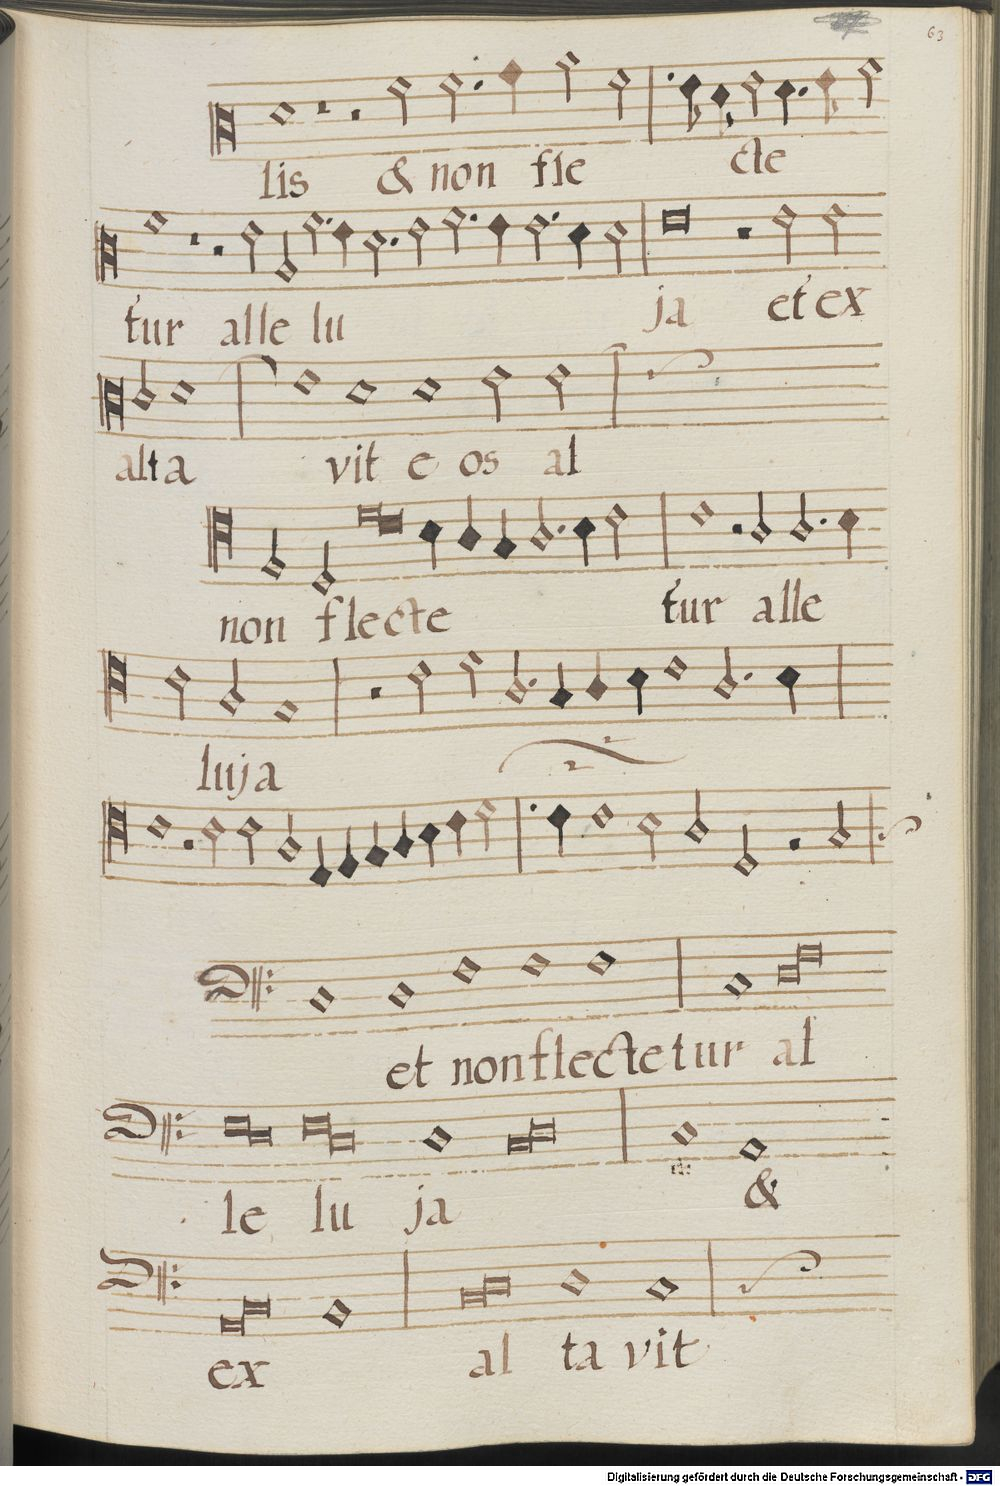 63
lis & non fle cte
tur alle lu ja et ex
alta vit e os al
non flecte tur alle
luja
et non flectetur al
le lu ja &
ex al ta vit
Digitalisierung gefördert durch die Deutsche Forschungsgemeinschaft - DFG